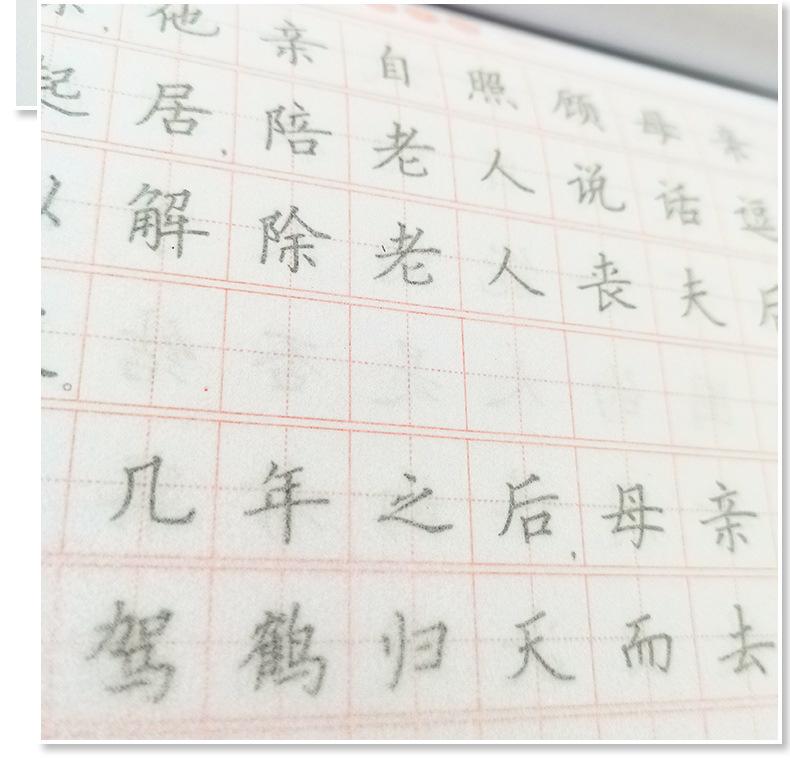 他亲自照顾母亲
起居，陪老人说话
以解除老人丧夫后
。
几年之后，母亲
驾鹤归天而去